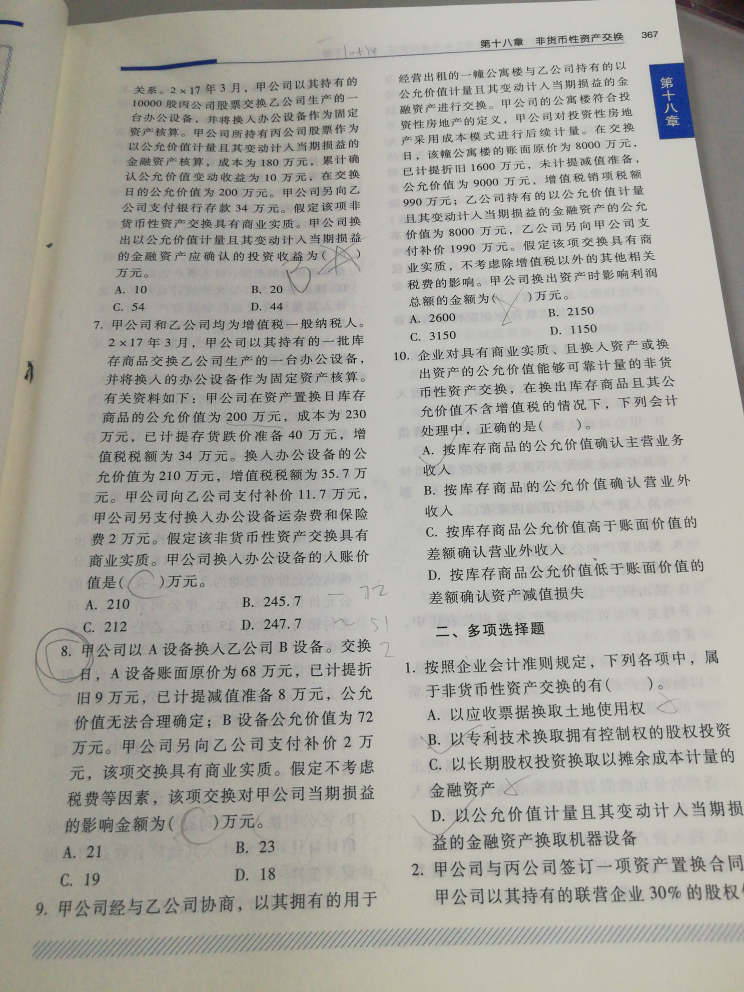 第十八章 非货币性资产交换 367
关系。2×17年3月，甲公司以其持有的
10000股丙公司股票交换乙公司生产的一
台办公设备，并将换入办公设备作为固定
资产核算。甲公司所持有丙公司股票作为
以公允价值计量且其变动计入当期损益的
金融资产核算，成本为180万元，累计确
认公允价值变动收益为10万元，在交换
日的公允价值为200万元。甲公司另向乙
公司支付银行存款34万元。假定该项非
货币性资产交换具有商业实质。甲公司换
出以公允价值计量且其变动计入当期损益
的金融资产应确认的投资收益为( )
万元。
A. 10 B. 20
C. 54 D. 44
7. 甲公司和乙公司均为增值税一般纳税人。
2×17年3月，甲公司以其持有的一批库
存商品交换乙公司生产的一台办公设备，
并将换入的办公设备作为固定资产核算。
有关资料如下：甲公司在资产置换日库存
商品的公允价值为200万元，成本为230
万元，已计提存货跌价准备40万元，增
值税税额为34万元。换入办公设备的公
允价值为210万元，增值税税额为35.7万
元。甲公司向乙公司支付补价11.7万元，
甲公司另支付换入办公设备运杂费和保险
费2万元。假定该非货币性资产交换具有
商业实质。甲公司换入办公设备的入账价
值是( )万元。
A. 210 B. 245.7
C. 212 D. 247.7
8. 甲公司以A设备换入乙公司B设备。交换
日，A设备账面原价为68万元，已计提折
旧9万元，已计提减值准备8万元，公允
价值无法合理确定；B设备公允价值为72
万元。甲公司另向乙公司支付补价2万
元，该项交换具有商业实质。假定不考虑
税费等因素，该项交换对甲公司当期损益
的影响金额为( C )万元。
A. 21 B. 23
C. 19 D. 18
9. 甲公司经与乙公司协商，以其拥有的用于
经营出租的一幢公寓楼与乙公司持有的以
公允价值计量且其变动计入当期损益的金
融资产进行交换。甲公司的公寓楼符合投
资性房地产的定义，甲公司对投资性房地
产采用成本模式进行后续计量。在交换
日，该幢公寓楼的账面原价为8000万元，
已计提折旧1600万元，未计提减值准备，
公允价值为9000万元，增值税销项税额
990万元；乙公司持有的以公允价值计量
且其变动计入当期损益的金融资产的公允
价值为8000万元，乙公司另向甲公司支
付补价1990万元。假定该项交换具有商
业实质，不考虑除增值税以外的其他相关
税费的影响。甲公司换出资产时影响利润
总额的金额为( )万元。
A. 2600 B. 2150
C. 3150 D. 1150
10. 企业对具有商业实质、且换入资产或换
出资产的公允价值能够可靠计量的非货
币性资产交换，在换出库存商品且其公
允价值不含增值税的情况下，下列会计
处理中，正确的是( )。
A. 按库存商品的公允价值确认主营业务
收入
B. 按库存商品的公允价值确认营业外
收入
C. 按库存商品公允价值高于账面价值的
差额确认营业外收入
D. 按库存商品公允价值低于账面价值的
差额确认资产减值损失
二、多项选择题
1. 按照企业会计准则规定，下列各项中，属
于非货币性资产交换的有( )。
A. 以应收票据换取土地使用权
B. 以专利技术换取拥有控制权的股权投资
C. 以长期股权投资换取以摊余成本计量的
金融资产
D. 以公允价值计量且其变动计入当期损
益的金融资产换取机器设备
2. 甲公司与丙公司签订一项资产置换合同
甲公司以其持有的联营企业30%的股权
第十八章
72
51
2